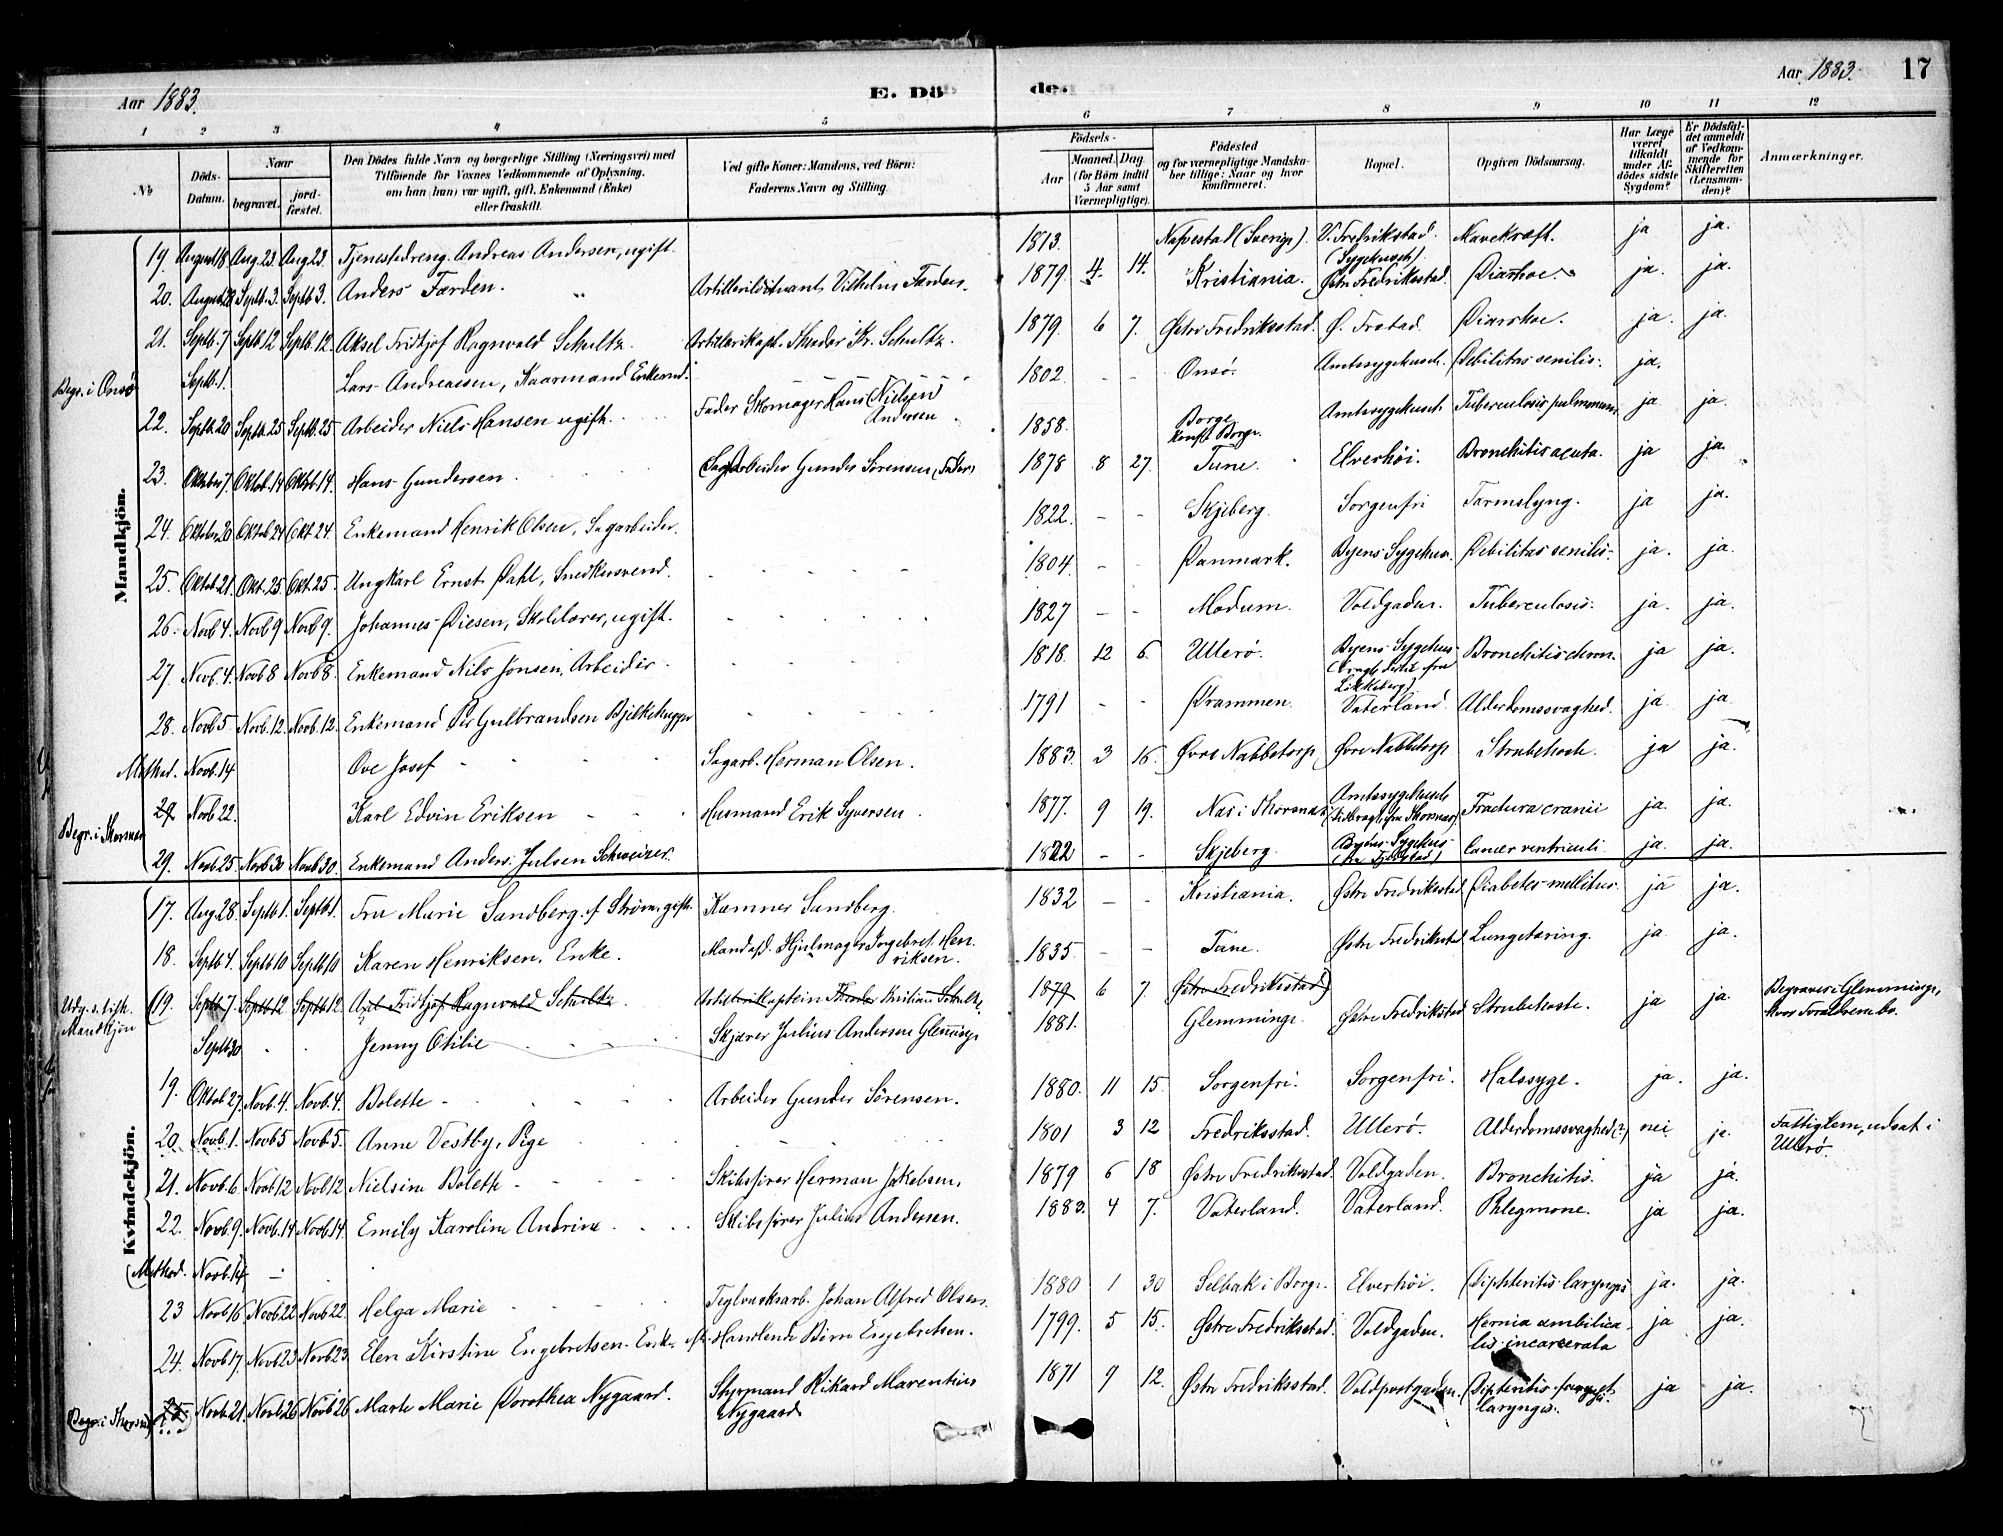 Aar 1883.
E. Dö
de.
Aar 1883. 17
1 2 3 4 5 6 7 8 9 10 11 12
No
Döds-Datum.
Naar
begravet.
jord-fæstet.
Den Dödes fulde Navn og borgerlige Stilling (Næringsvei) med
Tilföiende for Voxnes Vedkommende af Oplysning,
om han (hun) var ugift, gift, Enkemand (Enke)
eller fraskilt.
Ved gifte Koner: Mandens, ved Börn:
Faderens Navn og Stilling.
Födsels-
Aar
Maaned. Dag.
(for Börn indtil
5 Aar samt
Værnepligtige).
Födested
og for værnepligtige Mandska-
ber tillige: Naar og hvor
konfirmeret.
Bopæl.
Opgiven Dödsaarsag.
Har Læge
været
tilkaldt
under Af-
dödes sidste
Sygdom?
Er Dödsfal-
det anmeldt
af Vedkom-
mende for
Skifteretten
(Lensman-
den)?
Anmærkninger.
Mandkjön.
19. August 18. Aug. 23. Aug 23. Tjenestedreng Andreas Andersen, ugift. 1813. (Sverige). V. Fredrikstad. (Sygehuset) Mavekræft. ja ja.
20. August 28 Septb. 3. Septb 3. Anders Farden. Vilhelm Farden. 1879. 4. 14. Kristiania. Østre Fredriksstad. Diarrhoe. ja. ja.
21. Septb. 7 Septb. 12 Septb. 12. Aksel Fridtjof Ragnvald Schultz. Artillerikapt. Theodor Kr. Schultz. 1879. 6 7. Østre Fredriksstad. Ø. Frstad. Diarrhoe. ja. ja.
Begr. i Onsö Septb. 1. Lars Andreassen, Kaarmand Enkemd. 1802. - - Onsö. Amtssygehuset. Debilitas senilis. ja.
22. Septb. 20 Septb. 25 Septb. 25 Arbeider Niels Hansen ugift. Fader Skomager Hans (Nielsen) Andersen 1858. Borge konft Borge. Amtssygehuset Tuberculosis pulmonum ja ja.
23. Oktober 7. Oktob. 14 Oktob. 14. Hans Gundersen. Sagarbeider Gunder Sørensen (Fader) 1878 8 27. Tune. Elverhöi. Bronchitis acuta. ja ja.
24. Oktober 20 Oktob 24 Okt 24. Enkemand Henrik Olsen, Sagarbeider. 1822. - - Skjeberg. Sorgenfri Tarmslyng. ja ja.
25. Oktob. 21. Okt. 25. Okt. 25. Ungkarl Ernst Dahl, Snedkersvend. 1804. - - Danmark. Byens Sygehus. Debilitas senilis. ja. ja.
26. Novb 4. Novb 9 Novb 9. Johannes Diesen, Skolelærer, ugift. 1827 - - Modum. Voldgaden. Tuberculosis. ja. ja.
27. Novb. 4. Novb 8 Novb 8. Enkemand Nils Jonsen, Arbeider. 1818. 12 6. Ullerö. Byens Sygehus Bronchitis chron. ja ja.
28. Novb 5 Novb. 12 Novb. 12. Enkemand Per Gulbrandsen Bjelkehugger 1791 - - Drammen. Vaterland. Alderdomssvaghed. ja. ja
Novb. 14 Ove Josef Sagarb. Herman Olsen. 1883. 3 16. Øvre Nabbetorp Øvre Nabbetorp Strubehoste. ja ja.
Begr. i 29 Novb 22. Karl Edvin Eriksen Husmand Erik Syversen. 1877. 9 19. Amtssygehuset Fractura cranii ja. ja.
29. Novb 25 Novb 30 Novb 30. Enkemand Anders Julsen Schweizer. 1822 - - Skjeberg. Byens Sygehus Cancer ventriculi. ja. ja.
Kvindekjön.
17. Aug. 28. Septb 1. Septb 1. Fru Marie Sandberg f. Strøm, gift. Kæmner Sandberg. 1832 - - Kristiania. Østre Fredriksstad. Diabetes mellitus. ja ja.
18. Septb 4. Septb 10 Septb 10 Karen Henriksen, Enke. Mand afd. Hjulmager Ingebret Henriksen. 1835. - - Tune. Østre Fredriksstad Lungetæring. ja ja.
Mandkjøn (19. Septb 7. Septb 12 Septb 12. Axel Fridtjof Ragnvald Schultz. Artillerikaptein Theodor Kristian Schultz. 1879 6 7. Østre Fredriksstad)
Septb 30 Jenny Otilie Skjærer Julius Andersen Glemminge 1881. Glemminge. Østre Fredriksstad Strubehoste. ja ja. Begraves i Glemminge, hvor Forældrene bo.
19. Oktob 27. Novb. 4. Novb. 4. Bolette Arbeider Gunder Sørensen. 1880. 11 15. Sorgenfri. Sorgenfri. Halssyge. ja. ja.
20. Novb. 1. Novb 5 Novb. 5. Anne Vestby, Pige 1801 3 12 Fredriksstad. Ullerö. Alderdomssvaghed (?) nei. ja. Fattiglem, udsat i Ullerö.
21. Novb. 6 Novb 12 Novb 12 Nielsine Bolette Skibsfører Herman Jakobsen. 1879 6 18 Østre Fredriksstad. Voldgaden. Bronchitis. ja ja.
22. Novb. 9. Novb. 14 Novb. 14. Emily Karoline Andrine Skibsfører Julius Andersen. 1883. 4 7. Vaterland. Vaterland. Phlegmone. ja ja.
Novb. 14
23 Novb 16 Novb. 22 Novb 22 Helga Marie Teglverksarb. Johan Alfred Olsen. 1880 1 30 Selbak i Borge. Elverhöi. Diphteritis laryngis ja. ja.
24. Novb 17. Novb 23 Novb 23. Elen Kirstine Engebretsen. Enke. Børre Engebretsen. 1799. 5 15. Østre Fredriksstad. Voldgaden. Hernia umbilicalis incarcerata ja ja.
25 Novb. 21. Novb 26 Novb 26 Marte Marie Dorothea Nygaard. Styrmand Rikard Marentius Nygaard 1871 9 12. Østre Fredriksstad. Voldportgaden. Dipteritis laryngis. ja ja.